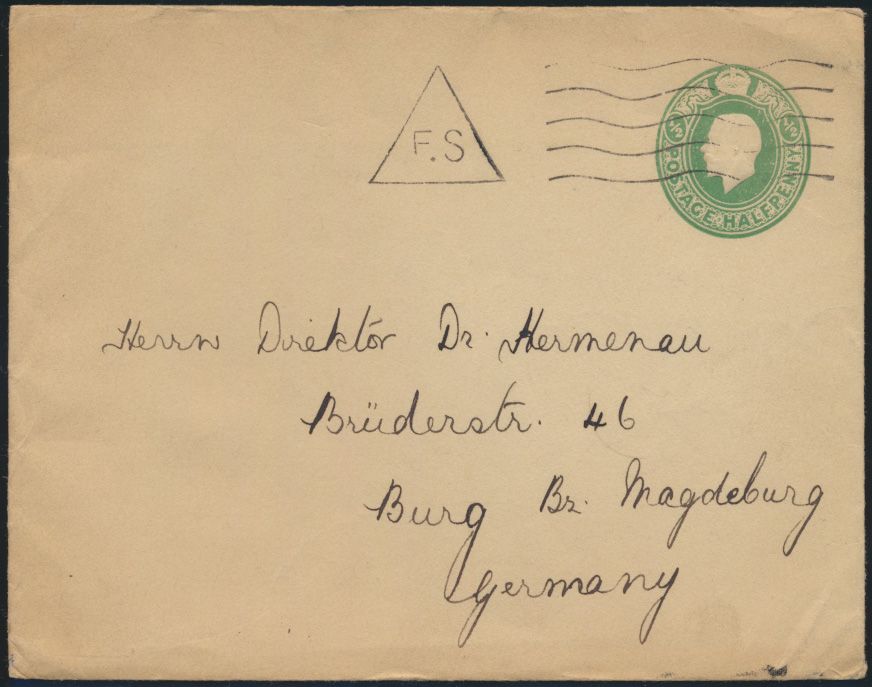 F.S
½ POSTAGE·HALFPENNY ½
Herrn Direktor Dr. Hermenau
Brüderstr. 46
Burg Bz. Magdeburg
Germany